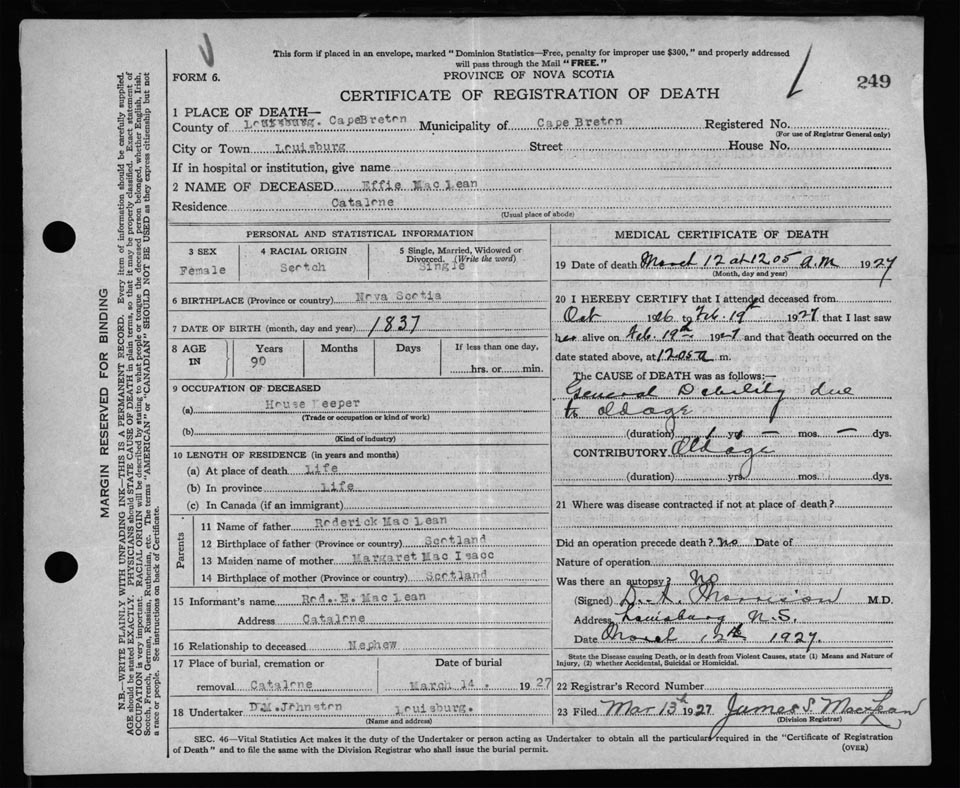 This form if placed in an envelope, marked "Dominion Statistics—Free, penalty for improper use $300," and properly addressed
will pass through the Mail "FREE."
FORM 6.
PROVINCE OF NOVA SCOTIA
249
CERTIFICATE OF REGISTRATION OF DEATH
1 PLACE OF DEATH—
County of Louisburg. CapeBreton Municipality of Cape Breton Registered No.
(For use of Registrar General only)
City or Town Louisburg Street House No.
If in hospital or institution, give name
2 NAME OF DECEASED Effie Mac Lean
Residence Catalone
(Usual place of abode)
PERSONAL AND STATISTICAL INFORMATION
3 SEX 4 RACIAL ORIGIN 5 Single, Married, Widowed or
Divorced. (Write the word)
Female Scotch Single
6 BIRTHPLACE (Province or country) Nova Scotia
7 DATE OF BIRTH (month, day and year) 1837
8 AGE IN Years Months Days If less than one day,
90 hrs. or min.
9 OCCUPATION OF DECEASED
(a) House Keeper
(Trade or occupation or kind of work)
(b)
(Kind of industry)
10 LENGTH OF RESIDENCE (in years and months)
(a) At place of death Life
(b) In province Life
(c) In Canada (if an immigrant)
Parents
11 Name of father Roderick Mac Lean
12 Birthplace of father (Province or country) Scotland
13 Maiden name of mother Margaret Mac Isacc
14 Birthplace of mother (Province or country) Scotland
15 Informant's name Rod. E. Mac Lean
Address Catalone
16 Relationship to deceased Nephew
17 Place of burial, cremation or Date of burial
removal Catalone March 14. 1927
18 Undertaker D.M. Johnston Louisburg.
(Name and address)
MEDICAL CERTIFICATE OF DEATH
19 Date of death March 12 at 12 05 a.m 1927
(Month, day and year)
20 I HEREBY CERTIFY that I attended deceased from
Oct 1926 to Feb. 19th 1927 that I last saw
her alive on Feb. 19th 1927 and that death occurred on the
date stated above, at 12 05 a m.
The CAUSE of DEATH was as follows:—
General Debility due
to old age
(duration) 1 yrs — mos. — dys.
CONTRIBUTORY. Old age
(duration) yrs. mos. dys.
21 Where was disease contracted if not at place of death?
Did an operation precede death? No Date of
Nature of operation
Was there an autopsy? No
(Signed) D. A. Morrison M.D.
Address Louisburg N.S.
Date March 12th 1927.
State the Disease causing Death, or in death from Violent Causes, state (1) Means and Nature of
Injury, (2) whether Accidental, Suicidal or Homicidal.
22 Registrar's Record Number
23 Filed Mar 13th 1927 James S. MacLean
(Division Registrar)
SEC. 46—Vital Statistics Act makes it the duty of the Undertaker or person acting as Undertaker to obtain all the particulars required in the "Certificate of Registration
of Death" and to file the same with the Division Registrar who shall issue the burial permit.
(OVER)
MARGIN RESERVED FOR BINDING
N.B.—WRITE PLAINLY WITH UNFADING INK—THIS IS A PERMANENT RECORD. Every item of information should be carefully supplied.
AGE should be stated EXACTLY. PHYSICIANS should STATE CAUSE OF DEATH in plain terms, so that it may be properly classified. Exact statement of
OCCUPATION is very important. RACIAL ORIGIN will be described by stating to what people or tongue the deceased person belonged, whether English, Irish,
Scotch, French, German, Russian, Ruthenian, etc. The terms "AMERICAN" or "CANADIAN" SHOULD NOT BE USED as they express citizenship but not
a race or people. See instructions on back of Certificate.